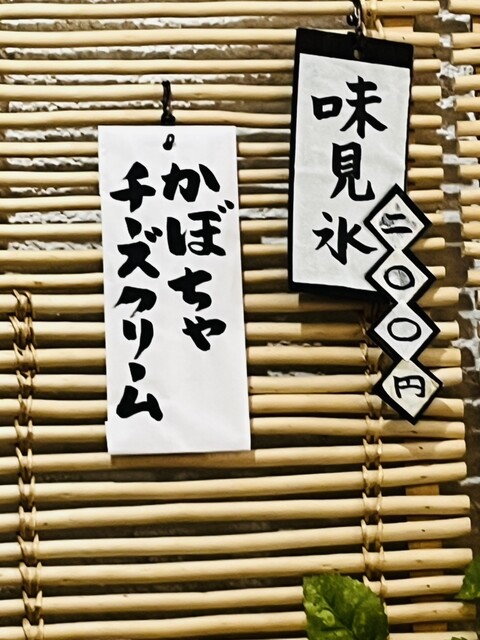 味見氷
二〇〇円
かぼちゃ
チーズクリーム